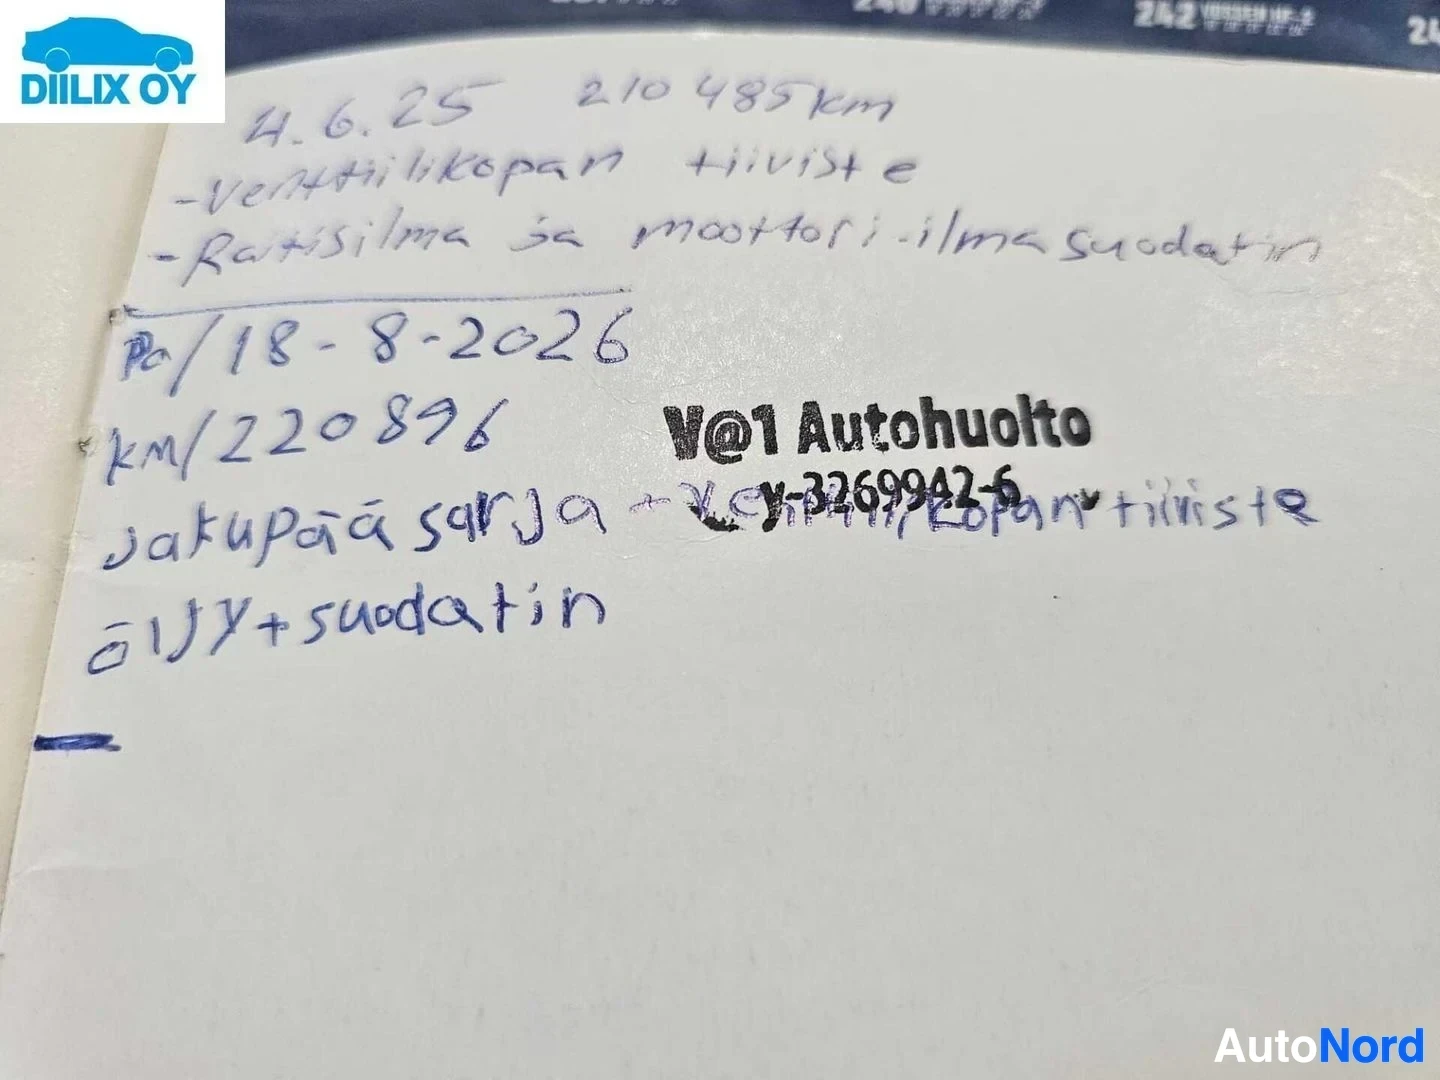 DIILIX OY
240
242
24
4.6.25 210 485 km
- Venttiilikopan tiiviste
- Raitisilma ja moottori-ilmasuodatin
Pa/18-8-2026
km/220896
V@1 Autohuolto
y-3269942-6
jakupää sarja + Venttiilikopan tiiviste
öljy + suodatin
AutoNord